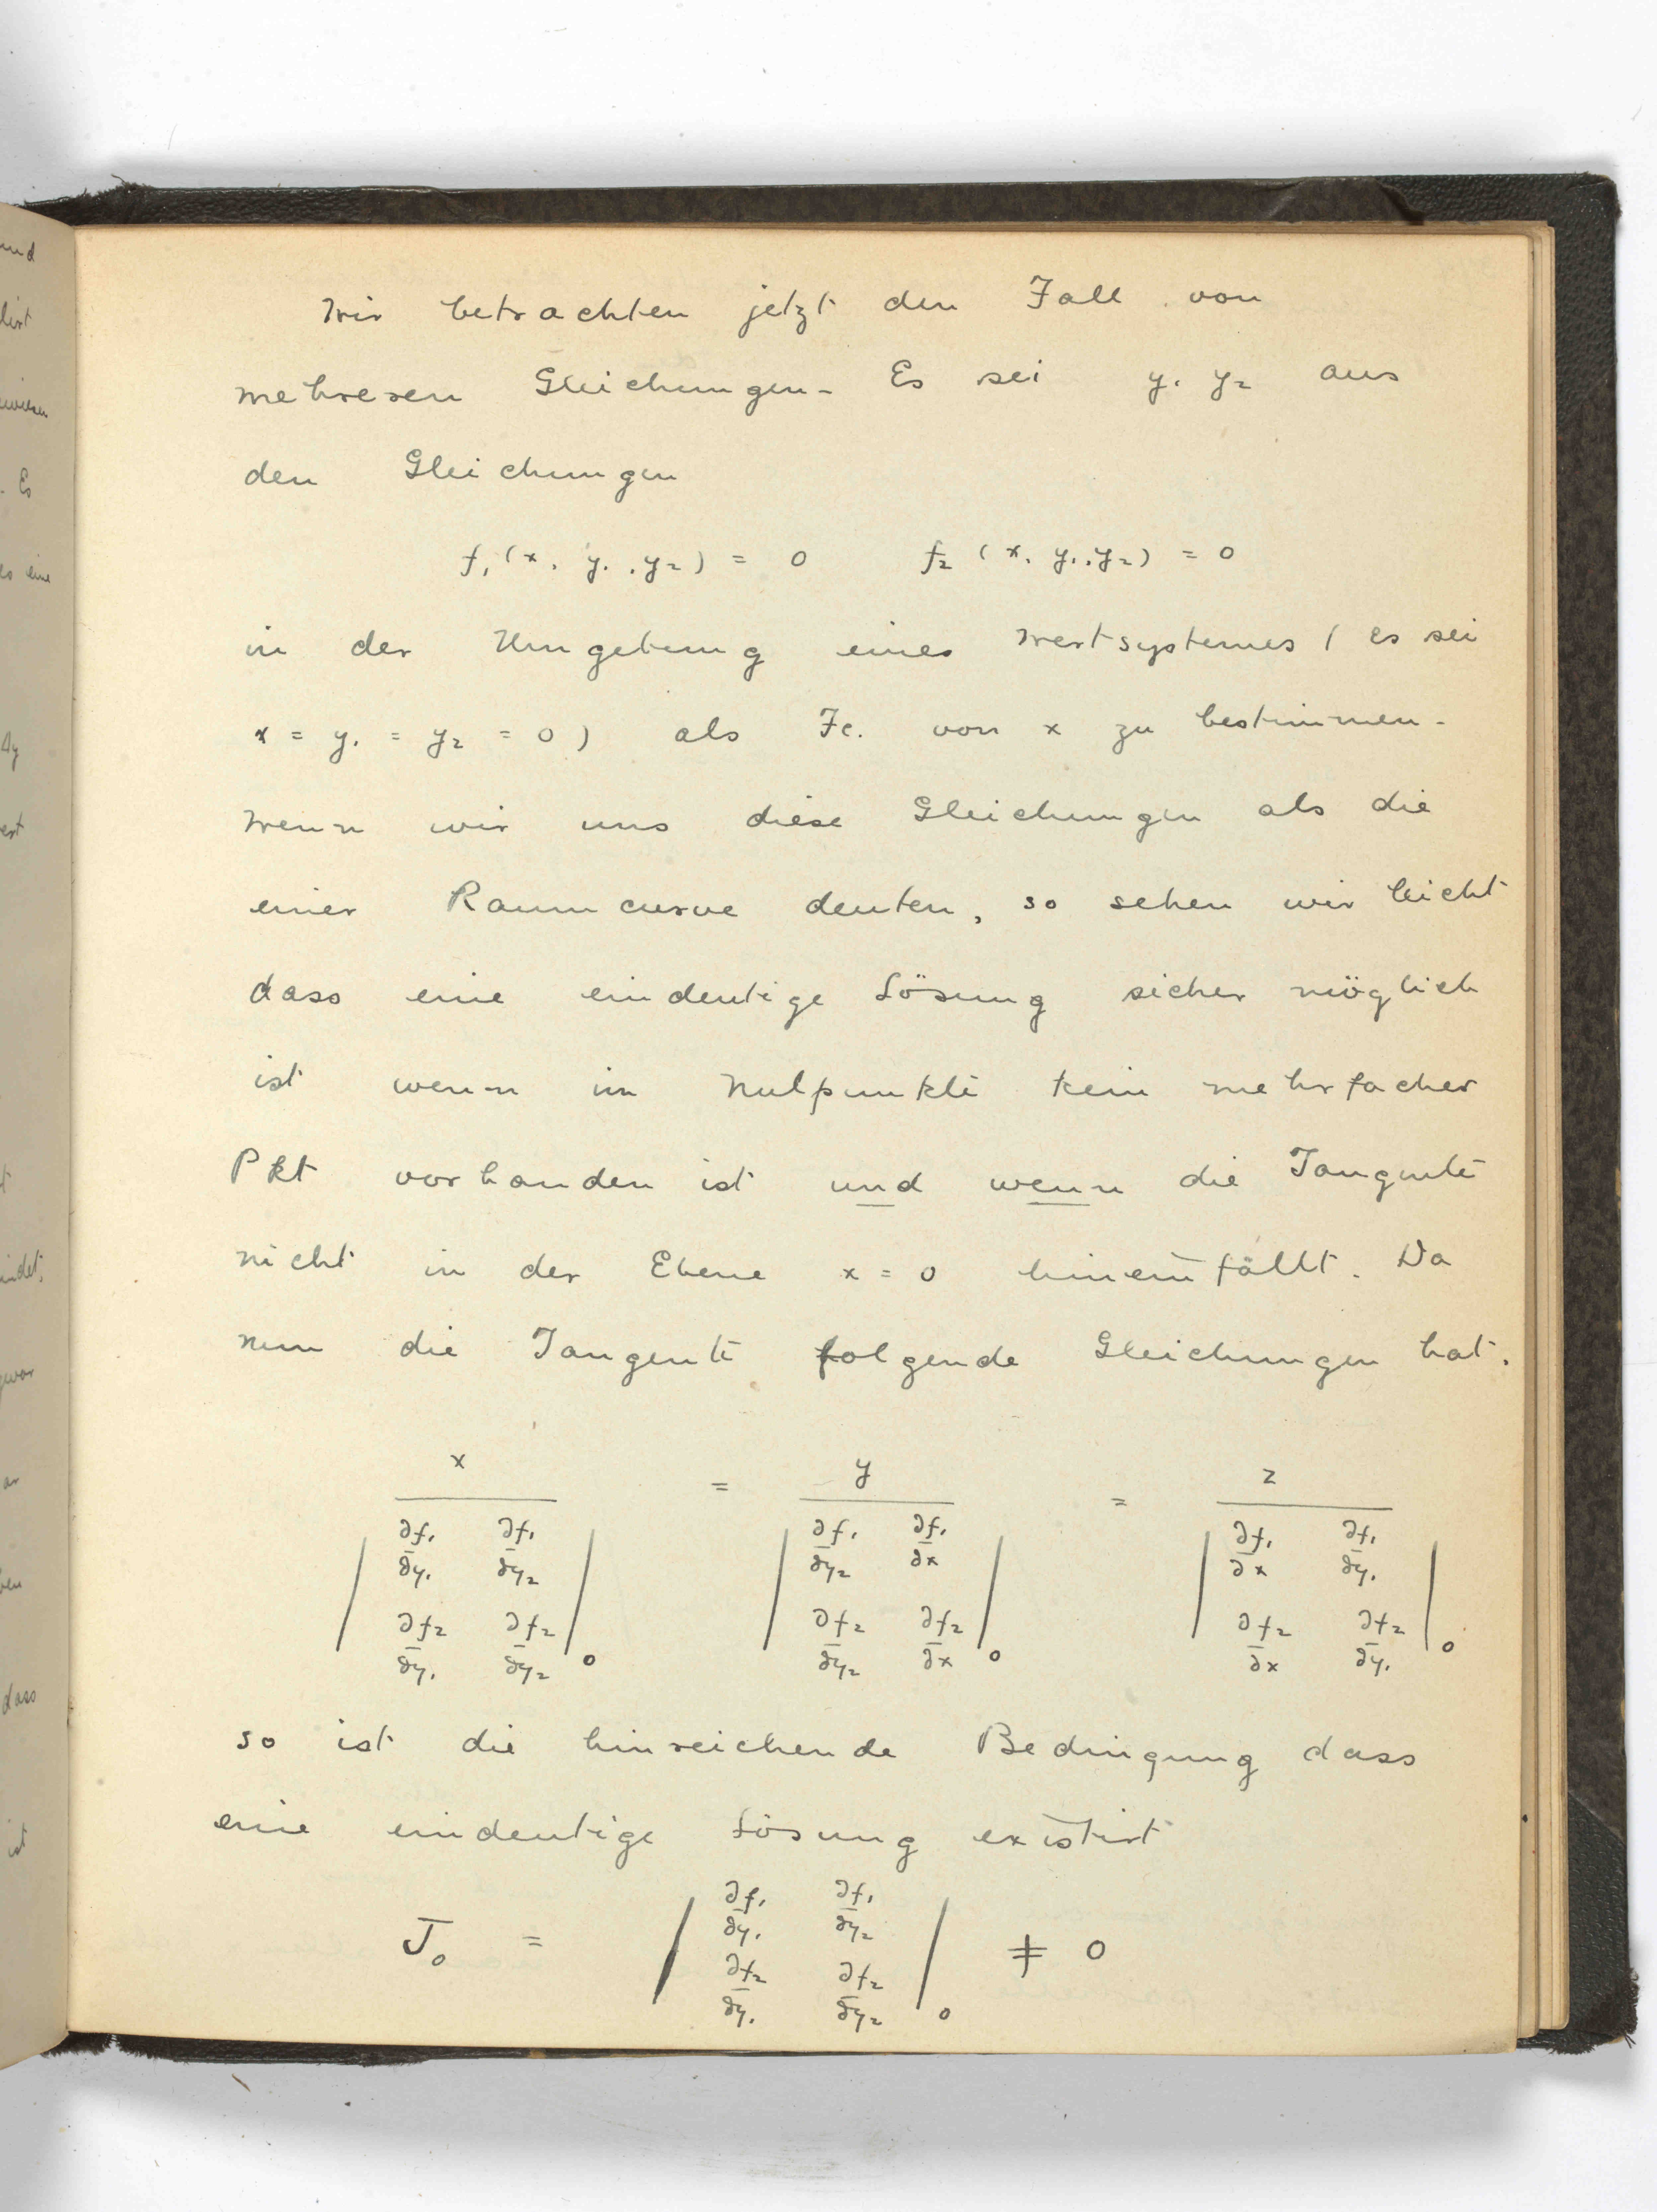 Wir betrachten jetzt den Fall von
mehreren Gleichungen. Es sei y₁ y₂ aus
den Gleichungen
f₁ (x, y₁, y₂) = 0 f₂ (x, y₁, y₂) = 0
in der Umgebung eines Wertsystemes ( es sei
x = y₁ = y₂ = 0 ) als Fc. von x zu bestimmen.
Wenn wir uns diese Gleichungen als die
einer Raumcurve deuten, so sehen wir leicht
dass eine eindeutige Lösung sicher möglich
ist wenn im Nulpunkte kein mehrfacher
Pkt vorhanden ist und wenn die Tangente
nicht in der Ebene x = 0 hineinfällt. Da
nun die Tangente folgende Gleichungen hat.
x = y = z
| ∂f₁/∂y₁ ∂f₁/∂y₂ | | ∂f₁/∂y₂ ∂f₁/∂x | | ∂f₁/∂x ∂f₁/∂y₁ |
| ∂f₂/∂y₁ ∂f₂/∂y₂ |₀ | ∂f₂/∂y₂ ∂f₂/∂x |₀ | ∂f₂/∂x ∂f₂/∂y₁ |₀
so ist die hinreichende Bedingung dass
eine eindeutige Lösung existirt
J₀ = | ∂f₁/∂y₁ ∂f₁/∂y₂ | ≠ 0
| ∂f₂/∂y₁ ∂f₂/∂y₂ |₀